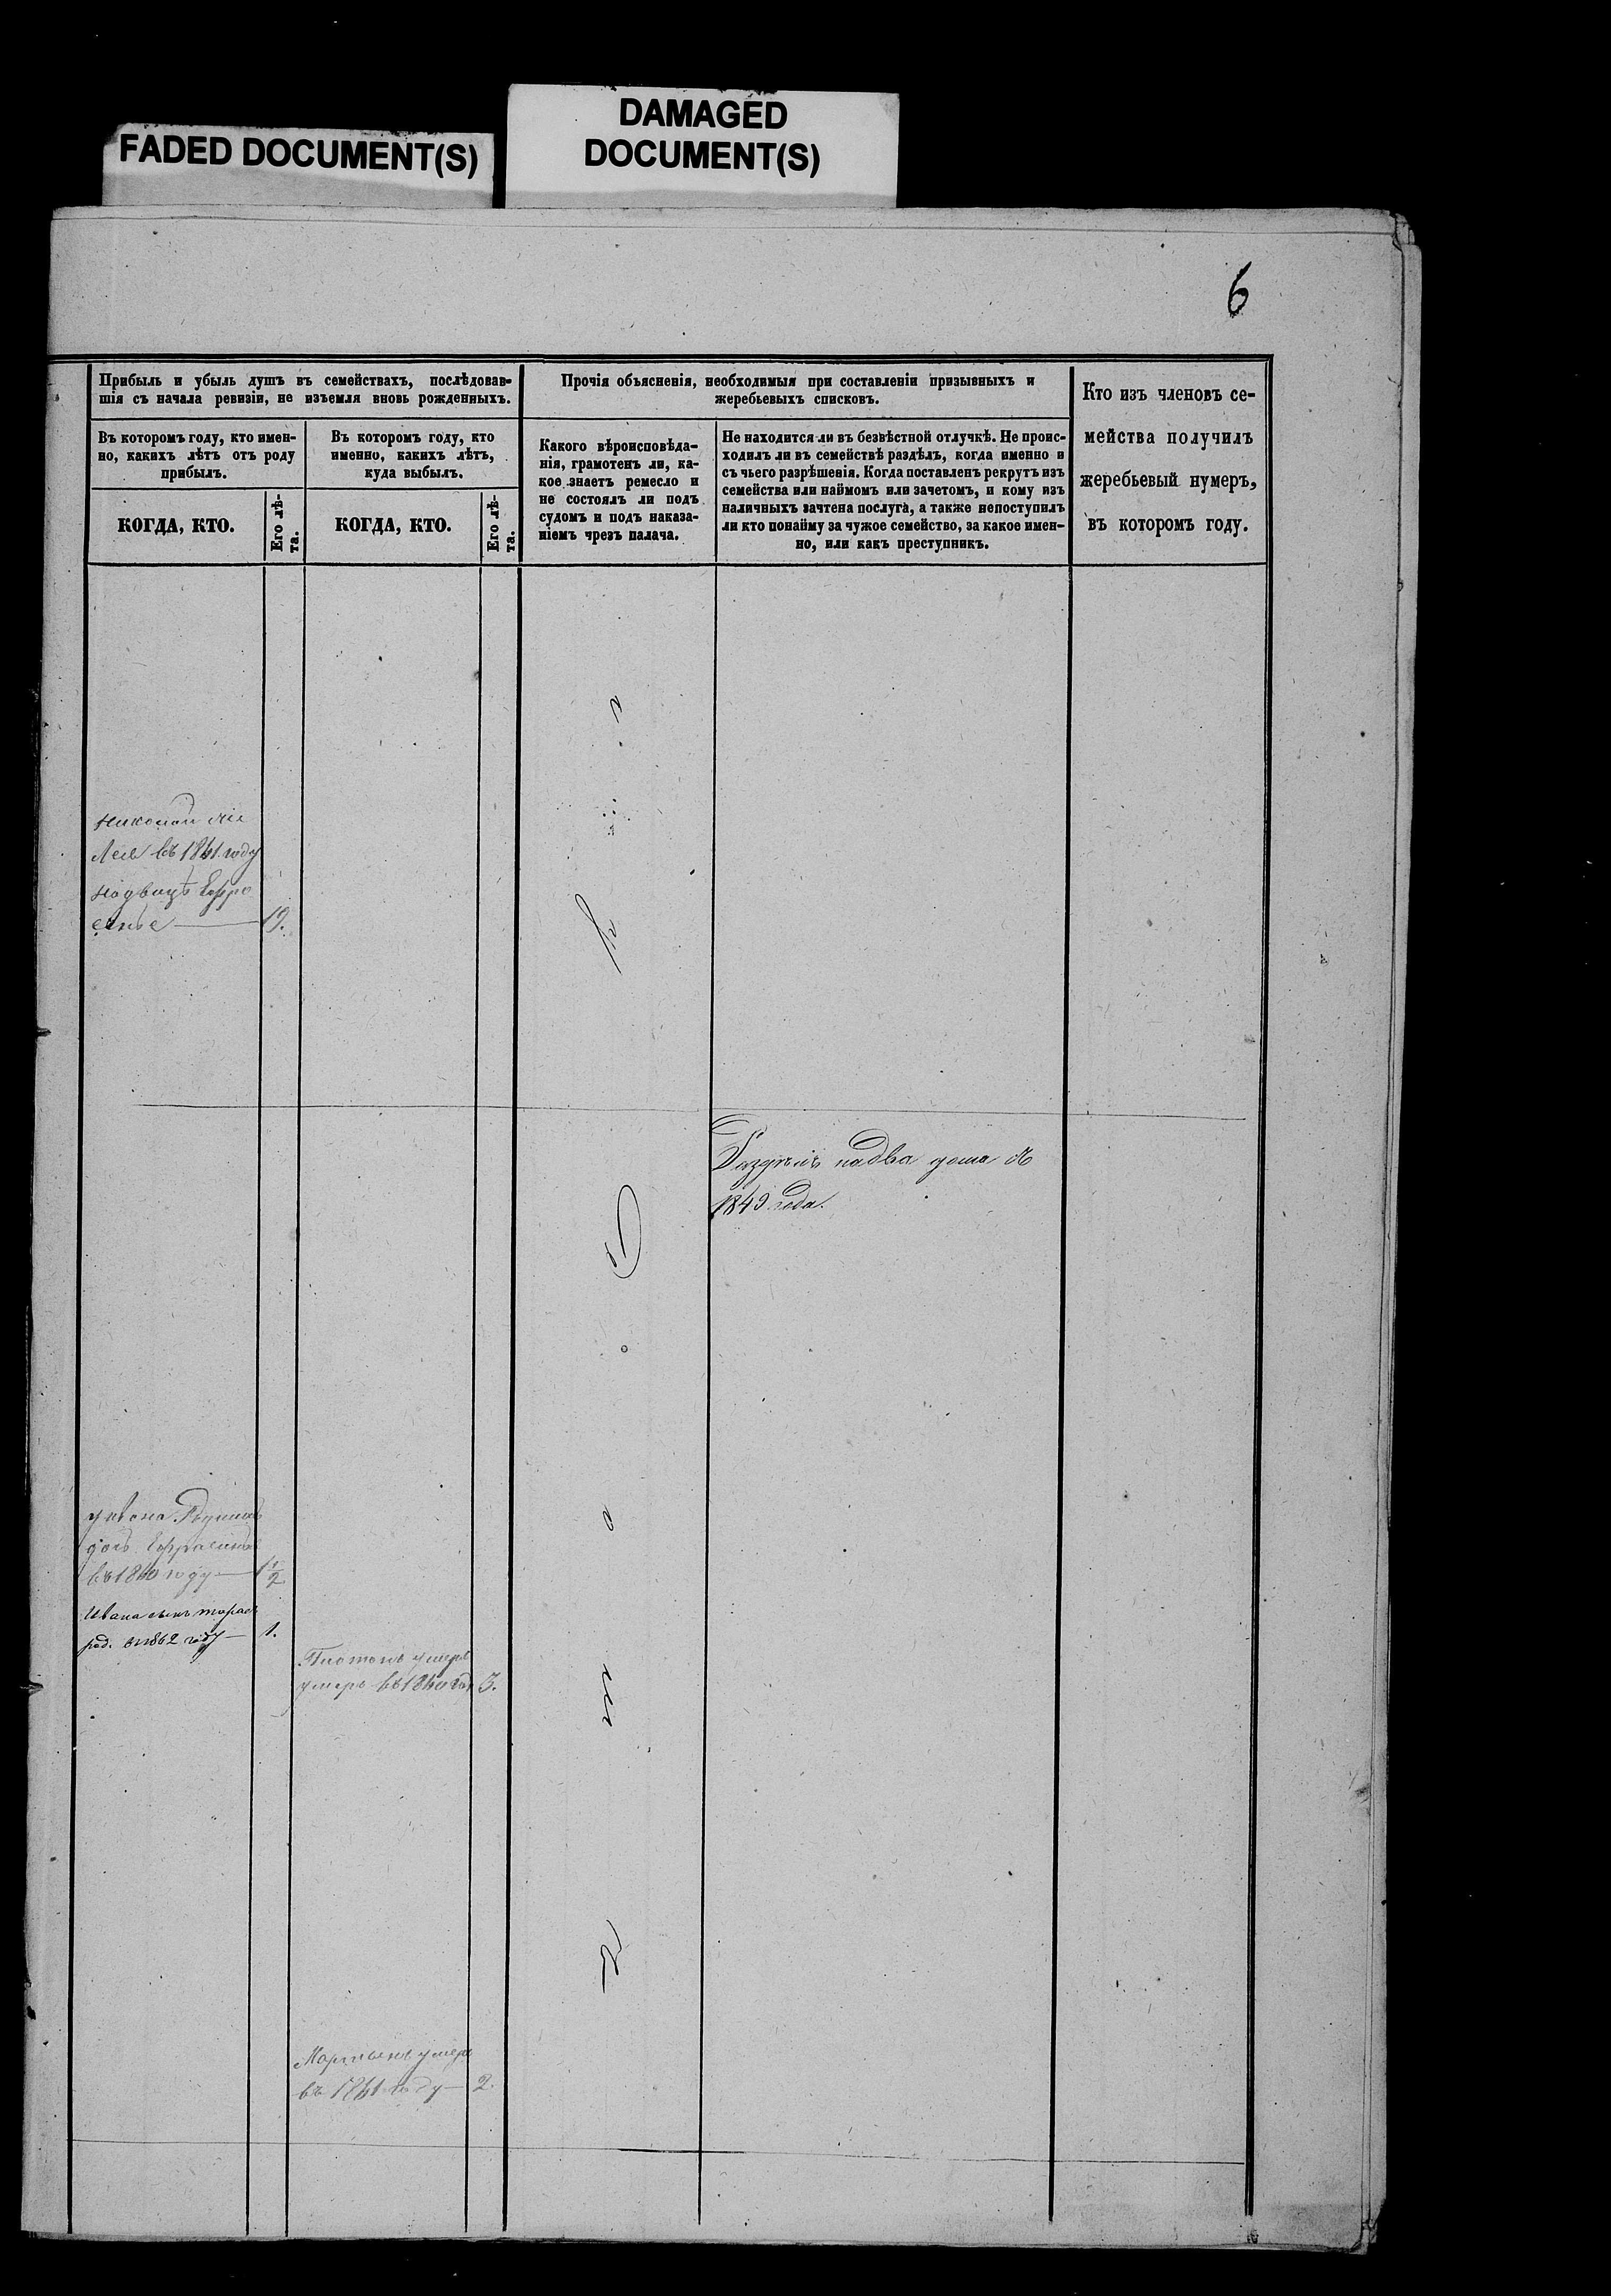 FADED DOCUMENT(S)
DAMAGED
DOCUMENT(S)
6
Прибыль и убыль душъ въ семействахъ, послѣдовав-
шія съ начала ревизіи, не изъемля вновь рожденныхъ.
Въ которомъ году, кто имен-
но, какихъ лѣтъ отъ роду
прибылъ.
КОГДА, КТО.
Его лѣ-
та.
Въ которомъ году, кто
именно, какихъ лѣтъ,
куда выбылъ.
КОГДА, КТО.
Его лѣ-
та.
Прочія объясненія, необходимыя при составленіи призывныхъ и
жеребьевыхъ списковъ.
Какого вѣроисповѣда-
нія, грамотенъ ли, ка-
кое знаетъ ремесло и
не состоялъ ли подъ
судомъ и подъ наказа-
ніемъ чрезъ палача.
Не находится ли въ безвѣстной отлучкѣ. Не проис-
ходилъ ли въ семействѣ раздѣлъ, когда именно и
съ чьего разрѣшенія. Когда поставленъ рекрутъ изъ
семейства или наймомъ или зачетомъ, и кому изъ
наличныхъ зачтена послуга, а также непоступилъ
ли кто понайму за чужое семейство, за какое имен-
но, или какъ преступникъ.
Кто изъ членовъ се-
мейства получилъ
жеребьевый нумеръ,
въ которомъ году.
въ 1861 году
19.
Раздѣлъ на два дома
1849 года.
въ 1860 году — 1 1/2
Ивана сынъ Тарасъ
род. въ 1862 году — 1.
Платонъ умеръ
умеръ въ 1860 год 3.
Мартынъ умеръ
въ 1861 году — 2.